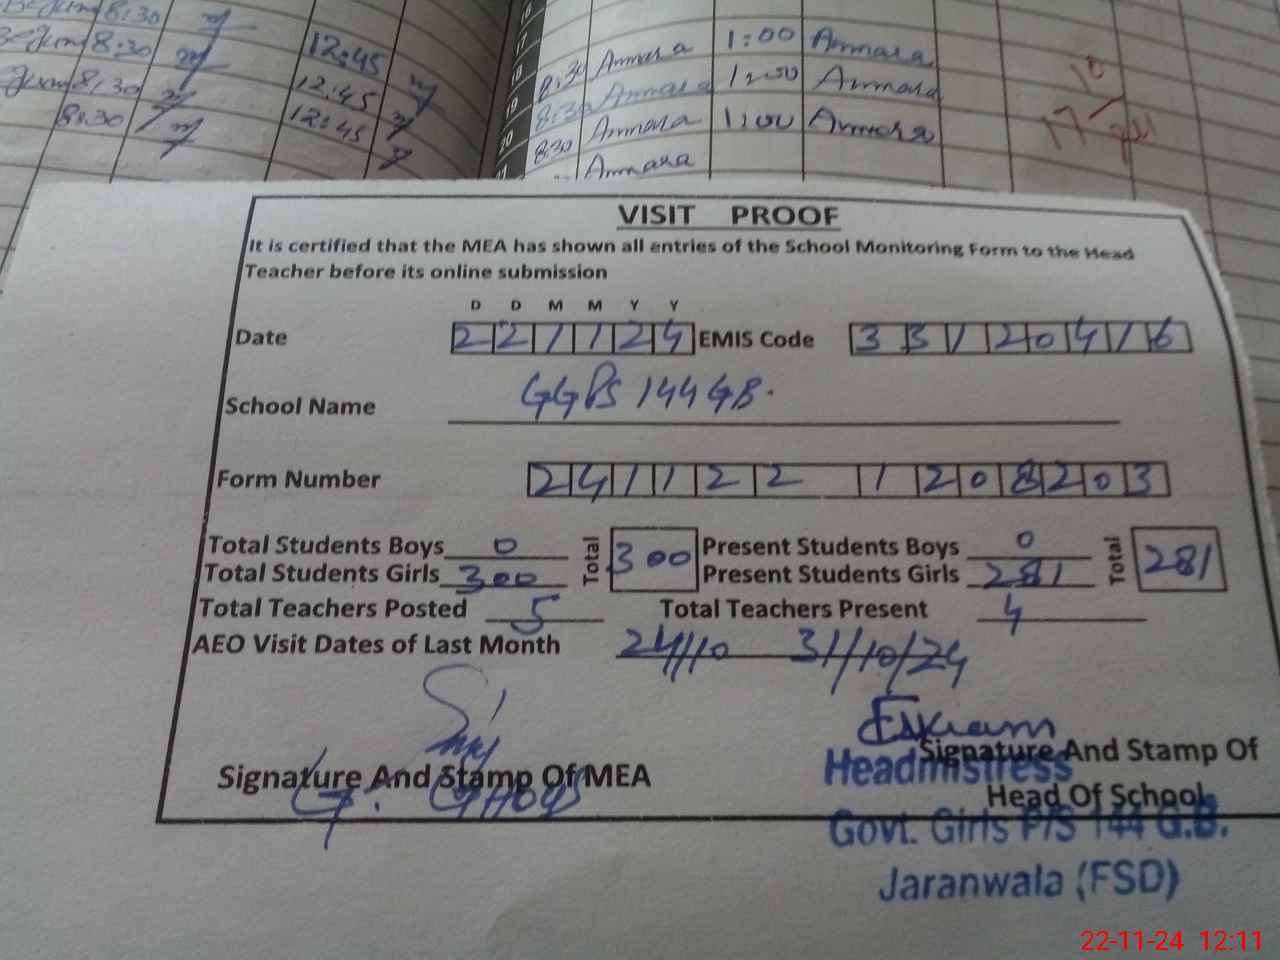 8:30
8:30 12:45
8:30 12:45
8:30 12:45
17
18 8:30 Ammara 1:00 Ammara
19 8:30 Ammara 1:00 Ammara
20 8:30 Ammara 1:00 Ammara
Ammara
VISIT PROOF
It is certified that the MEA has shown all entries of the School Monitoring Form to the Head
Teacher before its online submission
D D M M Y Y
Date 2 2 1 1 2 4 EMIS Code 3 3 1 2 0 4 1 6
School Name GGPS 144 GB.
Form Number 2 4 1 1 2 2 1 2 0 8 2 0 3
Total Students Boys 0 Total 300 Present Students Boys 0 Total 281
Total Students Girls 300 Present Students Girls 281
Total Teachers Posted 5 Total Teachers Present 4
AEO Visit Dates of Last Month 24/10 31/10/24
Signature And Stamp Of MEA
Signature And Stamp Of
Head Of School
Headmistress
Govt. Girls P/S 144 G.B.
Jaranwala (FSD)
22-11-24 12:11